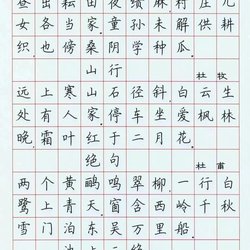 昼出耘田夜绩麻,村庄儿
女各当家。童孙未解供耕
织,也傍桑阴学种瓜。
山行
杜牧
远上寒山石径斜,白云生
处有人家。停车坐爱枫林
晚,霜叶红于二月花。
绝句
杜甫
两个黄鹂鸣翠柳,一行白
鹭上青天。窗含西岭千秋
雪,门泊东吴万里船。